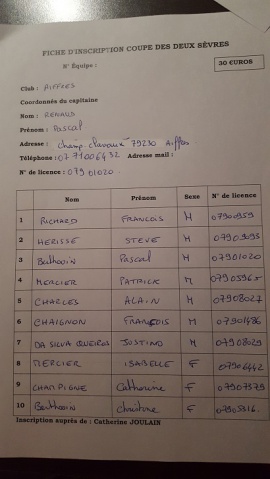 FICHE D'INSCRIPTION COUPE DES DEUX SÈVRES
N° Équipe :
30 EUROS
Club : AIFFRES
Coordonnés du capitaine
Nom : RENAUD
Prénom : Pascal
Adresse : 79230 Aiffres
Téléphone : 0771006432 Adresse mail :
N° de licence : 07901020
Nom Prénom Sexe N° de licence
1 RICHARD FRANCOIS M 07900959
2 HERISSE STEVE M
3 Berthoin Pascal M 07901020
4 MERCIER PATRICK M 07905965
5 CHARLES ALAIN M 07908027
6 CHAIGNON FRANÇOIS M 07901486
7 DA SILVA QUEIROS JUSTINO M 07908029
8 MERCIER ISABELLE F 07906442
9 CHAMPIGNE Catherine F 07907379
10 Berthoin Christine F
Inscription auprès de : Catherine JOULAIN